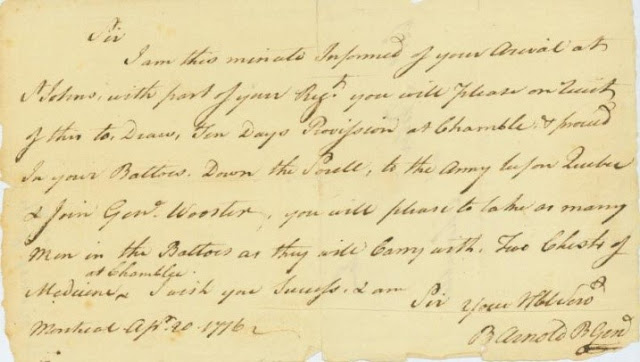 Sir
I am this minute Informed of your Arival at
St Johns, with part of your Regt. you will Please on Receit
of this to, Draw, Ten Days Provission at Chamble, & proceed
In your Battoes. Down the Sorell, to the Army before Quebec
& Join Genl. Wooster, you will please to take as many
Men in the Battoes as they will Carry with. Two Chests of
at Chamblee
Medicine & I wish you Success. & am Sir your Hble Servt
Montreal Apr. 20. 1776
B Arnold B Genl